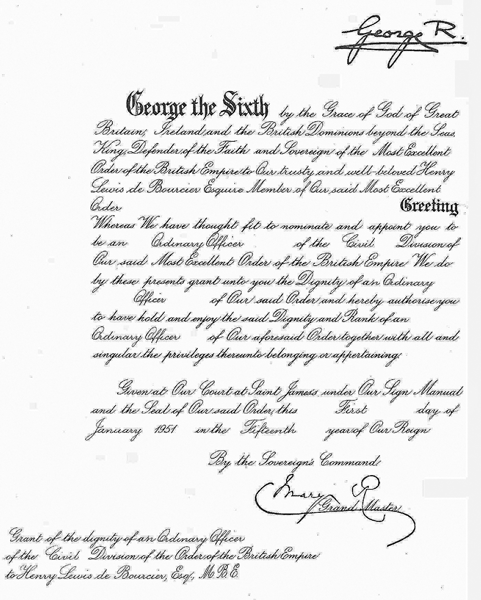 George R.
George the Sixth by the Grace of God of Great
Britain, Ireland and the British Dominions beyond the Seas,
King, Defender of the Faith and Sovereign of the Most Excellent
Order of the British Empire to Our trusty and well-beloved Henry
Lewis de Bourcier Esquire Member of Our said Most Excellent
Order Greeting
Whereas We have thought fit to nominate and appoint you to
be an Ordinary Officer of the Civil Division of
Our said Most Excellent Order of the British Empire We do
by these presents grant unto you the Dignity of an Ordinary
Officer of Our said Order and hereby authorise you
to have hold and enjoy the said Dignity and Rank of an
Ordinary Officer of Our aforesaid Order together with all and
singular the privileges thereunto belonging or appertaining:
Given at Our Court at Saint James's under Our Sign Manual
and the Seal of Our said Order, this First day of
January 1951 in the Fifteenth year of Our Reign
By the Sovereign's Command,
Mary R
Grand Master
Grant of the dignity of an Ordinary Officer
of the Civil Division of the Order of the British Empire
to Henry Lewis de Bourcier, Esq., M.B.E.